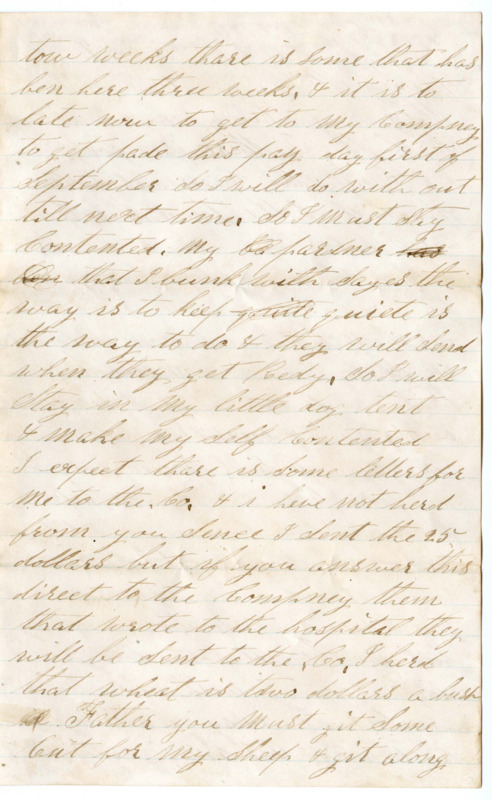 tow weeks thare is some that has
ben here three weeks, & it is to
late now to get to my Compney
to get pade this pay day first of
September so I will do with out
till next time. So I must stay
Contented. my partner has
that I bunk with sayes the
way is to keep quiete is
the way to do & they will send
when they get Redy, so I will
stay in my little dog tent
& make my self Contented
I expect thare is some letters for
me to the Co. & i heve not herd
from you sence I sent the 25
dollars but if you answer this
direct to the Compney them
that wrote to the hospital they
will be sent to the Co, I herd
that wheat is two dollars a bush
el Father you must git some
Cut for my sheep & git along